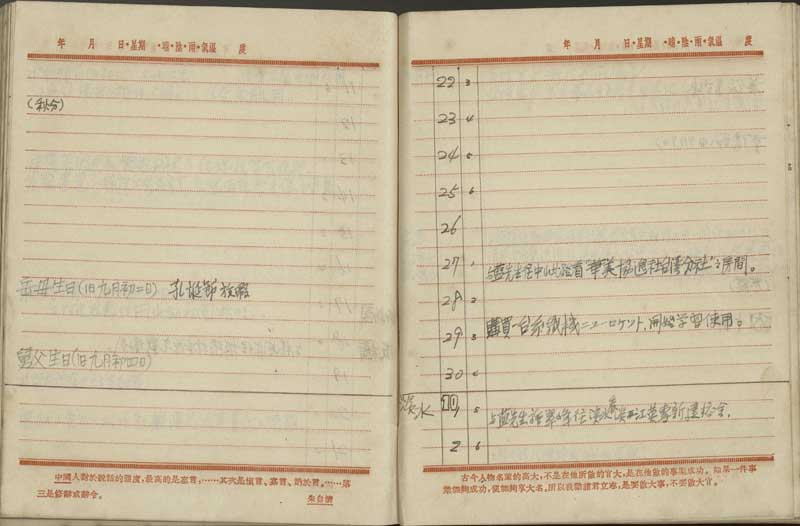 年 月 日・星期 ・晴・陰・雨・氣溫 度
(秋分)
岳母生日(旧九月初二日) 孔誕節放
父生日(旧九月初四日)
中國人對於說話的態度,最高的是忘言,……其次是慎言、寡言、訥於言。……第
三是修辭或辭令。
朱自清
年 月 日・星期 ・晴・陰・雨・氣溫 度
22 3
23 4
24 5
25 6
26
27 1 與藍先生在中山北路看“華美協進社台灣分社”之房間。
28 2
29 3 購買一台 ニューロケット,開始學習使用。
30 4
淡水 10/1 5 與藍先生
2 6
古今人物名望的高大,不是在他所做的官大,是在他做的事業成功。如果一件事
業能夠成功,便能夠享大名。所以我勸諸君立志,是要做大事,不要做大官。